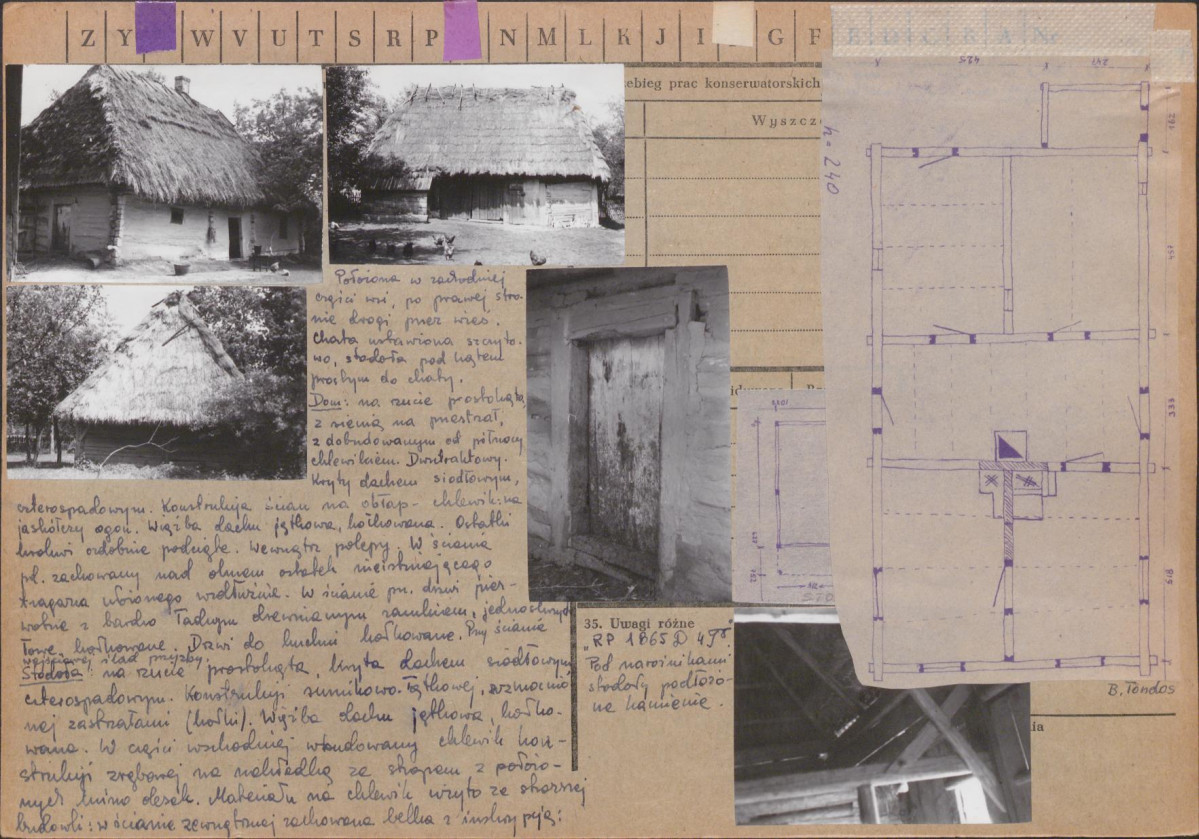 Z Y W V U T S R P N M L K J I G F E D C B A Nr
ebieg prac konserwatorskich
Wyszcz
h=240
574
162
451
333
518
Położona w zachodniej
części wsi, po prawej stro-
nie drogi przez wieś.
Chata ustawiona szczyto-
wo, stodoła pod kątem
prostym do chaty.
Dom: na rzucie prostokąta,
z sienią na przestrzał,
z dobudowanym od północy
chlewikiem. Dwutraktowy.
Kryty dachem siodłowym,
czterospadowym. Konstrukcja ścian na obłap - chlewik: na
jaskółczy ogon. Więźba dachu jętkowa, kołkowana. Ostatki
krokwi ozdobnie podcięte. Wewnątrz polepy. W ścianie
pd. zachowany nad oknem ostatek nieistniejącego
tragarza wbitego wzdłużnie. W ścianie pn. drzwi pier-
wotne z bardzo ładnym drewnianym zamkiem, jednoskrzyd-
łowe, kołkowane. Drzwi do kuchni kołkowane. Przy ścianie
wejściowej ślad przyzby.
Stodoła: na rzucie prostokąta, kryta dachem siodłowym,
czterospadowym. Konstrukcji sumikowo-łątkowej, wzmocnio-
nej zastrzałami (kołki). Więźba dachu jętkowa, kołko-
wana. W części wschodniej wbudowany chlewik kon-
strukcji zrębowej na nakładkę ze stropem z położo-
nych luźno desek. Materiału na chlewik użyto ze starszej
budowli: w ścianie zewnętrznej zachowana belka z inskrypcją:
35. Uwagi różne
"RP 1865 D 4
Pod narożnikami
stodoły podłożo-
ne kamienie.
STO
B. Tondos
ia